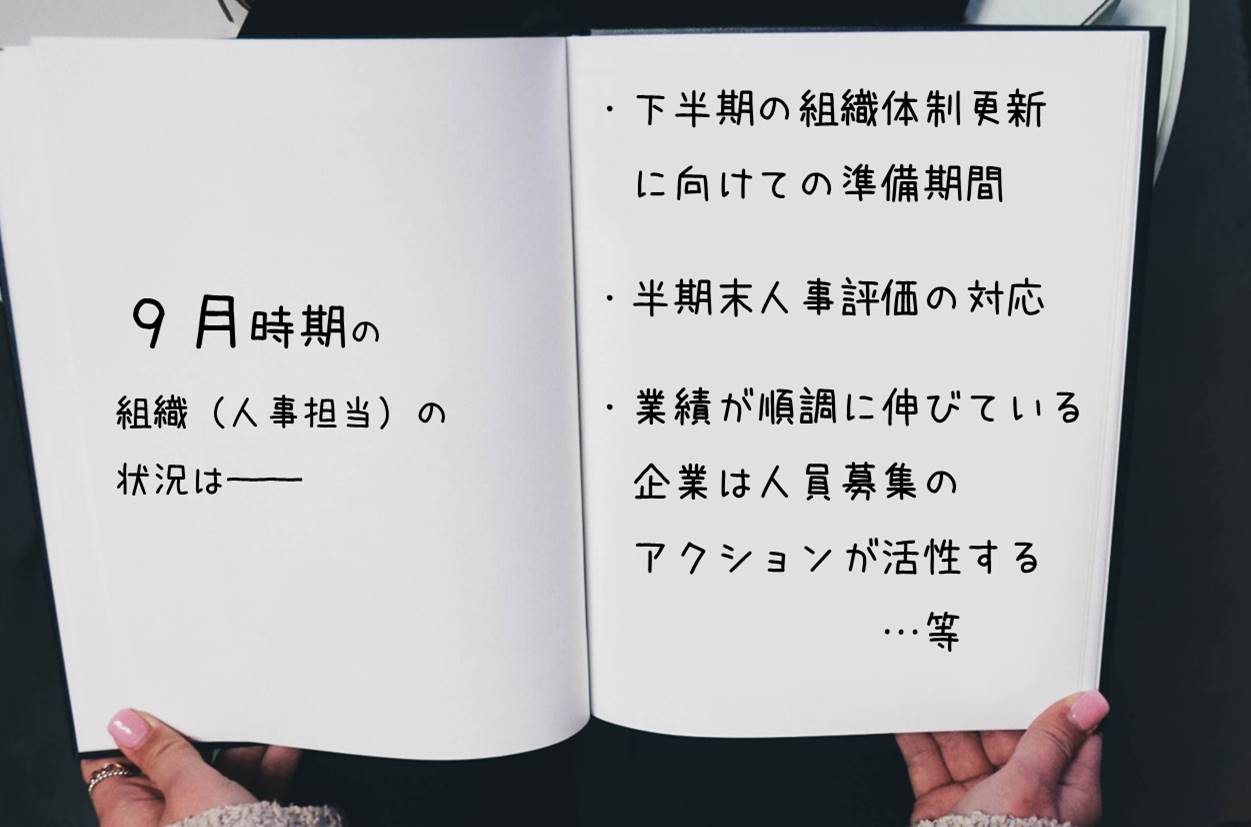 9月時期の
組織（人事担当）の
状況は――
・下半期の組織体制更新
に向けての準備期間
・半期末人事評価の対応
・業績が順調に伸びている
企業は人員募集の
アクションが活性する
…等